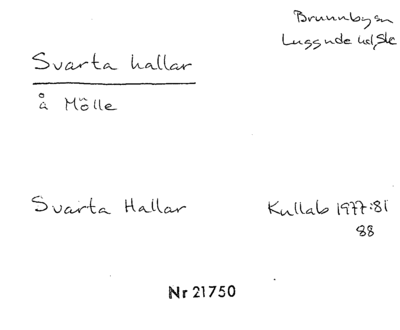 Brunnby sn
Luggude hd, Sk
Svarta hallar
å Mölle
Svarta Hallar
Kullab 1977:81
88
Nr 21750